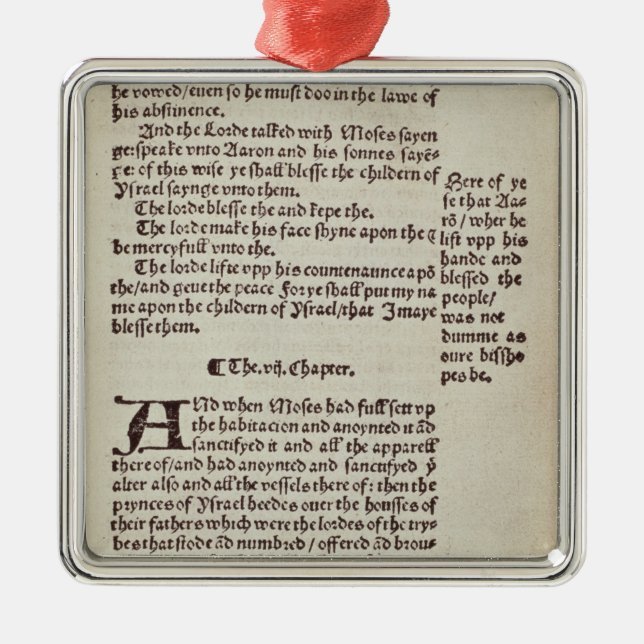 he vowed/even so he must doo in the lawe of
his abstinence.
And the Lorde talked with Moses sayen
ge: speake vnto Aaron and his sonnes sayē-
ge: of this wise ye shall blesse the childern of
Ysrael saynge vnto them.
The lorde blesse the and kepe the.
The lorde make his face shyne apon the &
be mercyfull vnto the.
The lorde lifte vpp his countenaunce apō
the/and geue the peace For ye shall put my na
me apon the childern of Ysrael/that I maye
blesse them.
¶ The .vij. Chapter.
AND when Moses had full sett vp
the habitacion and anoynted it ād
sanctifyed it and all the apparell
there of/and had anoynted and sanctifyed ẏ
alter also and all the vessels there of: then the
prynces of Ysrael heedes ouer the housses of
their fathers which were the lordes of the try-
bes that stode ād numbred/offered ād brou-
Here of ye
se that Aa-
rō/wher he
lift vpp his
hande and
blessed the
people/
was not
dumme as
oure bissho
pes be.